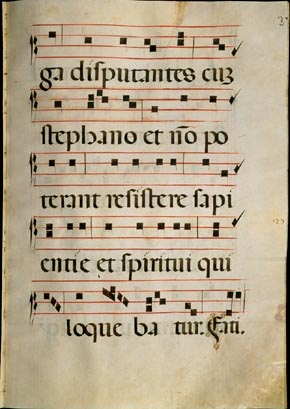 ga disputantes cuz
stephano et nõo po
terant resistere sapi
entie et spiritui qui
loque ba tur. Gati.